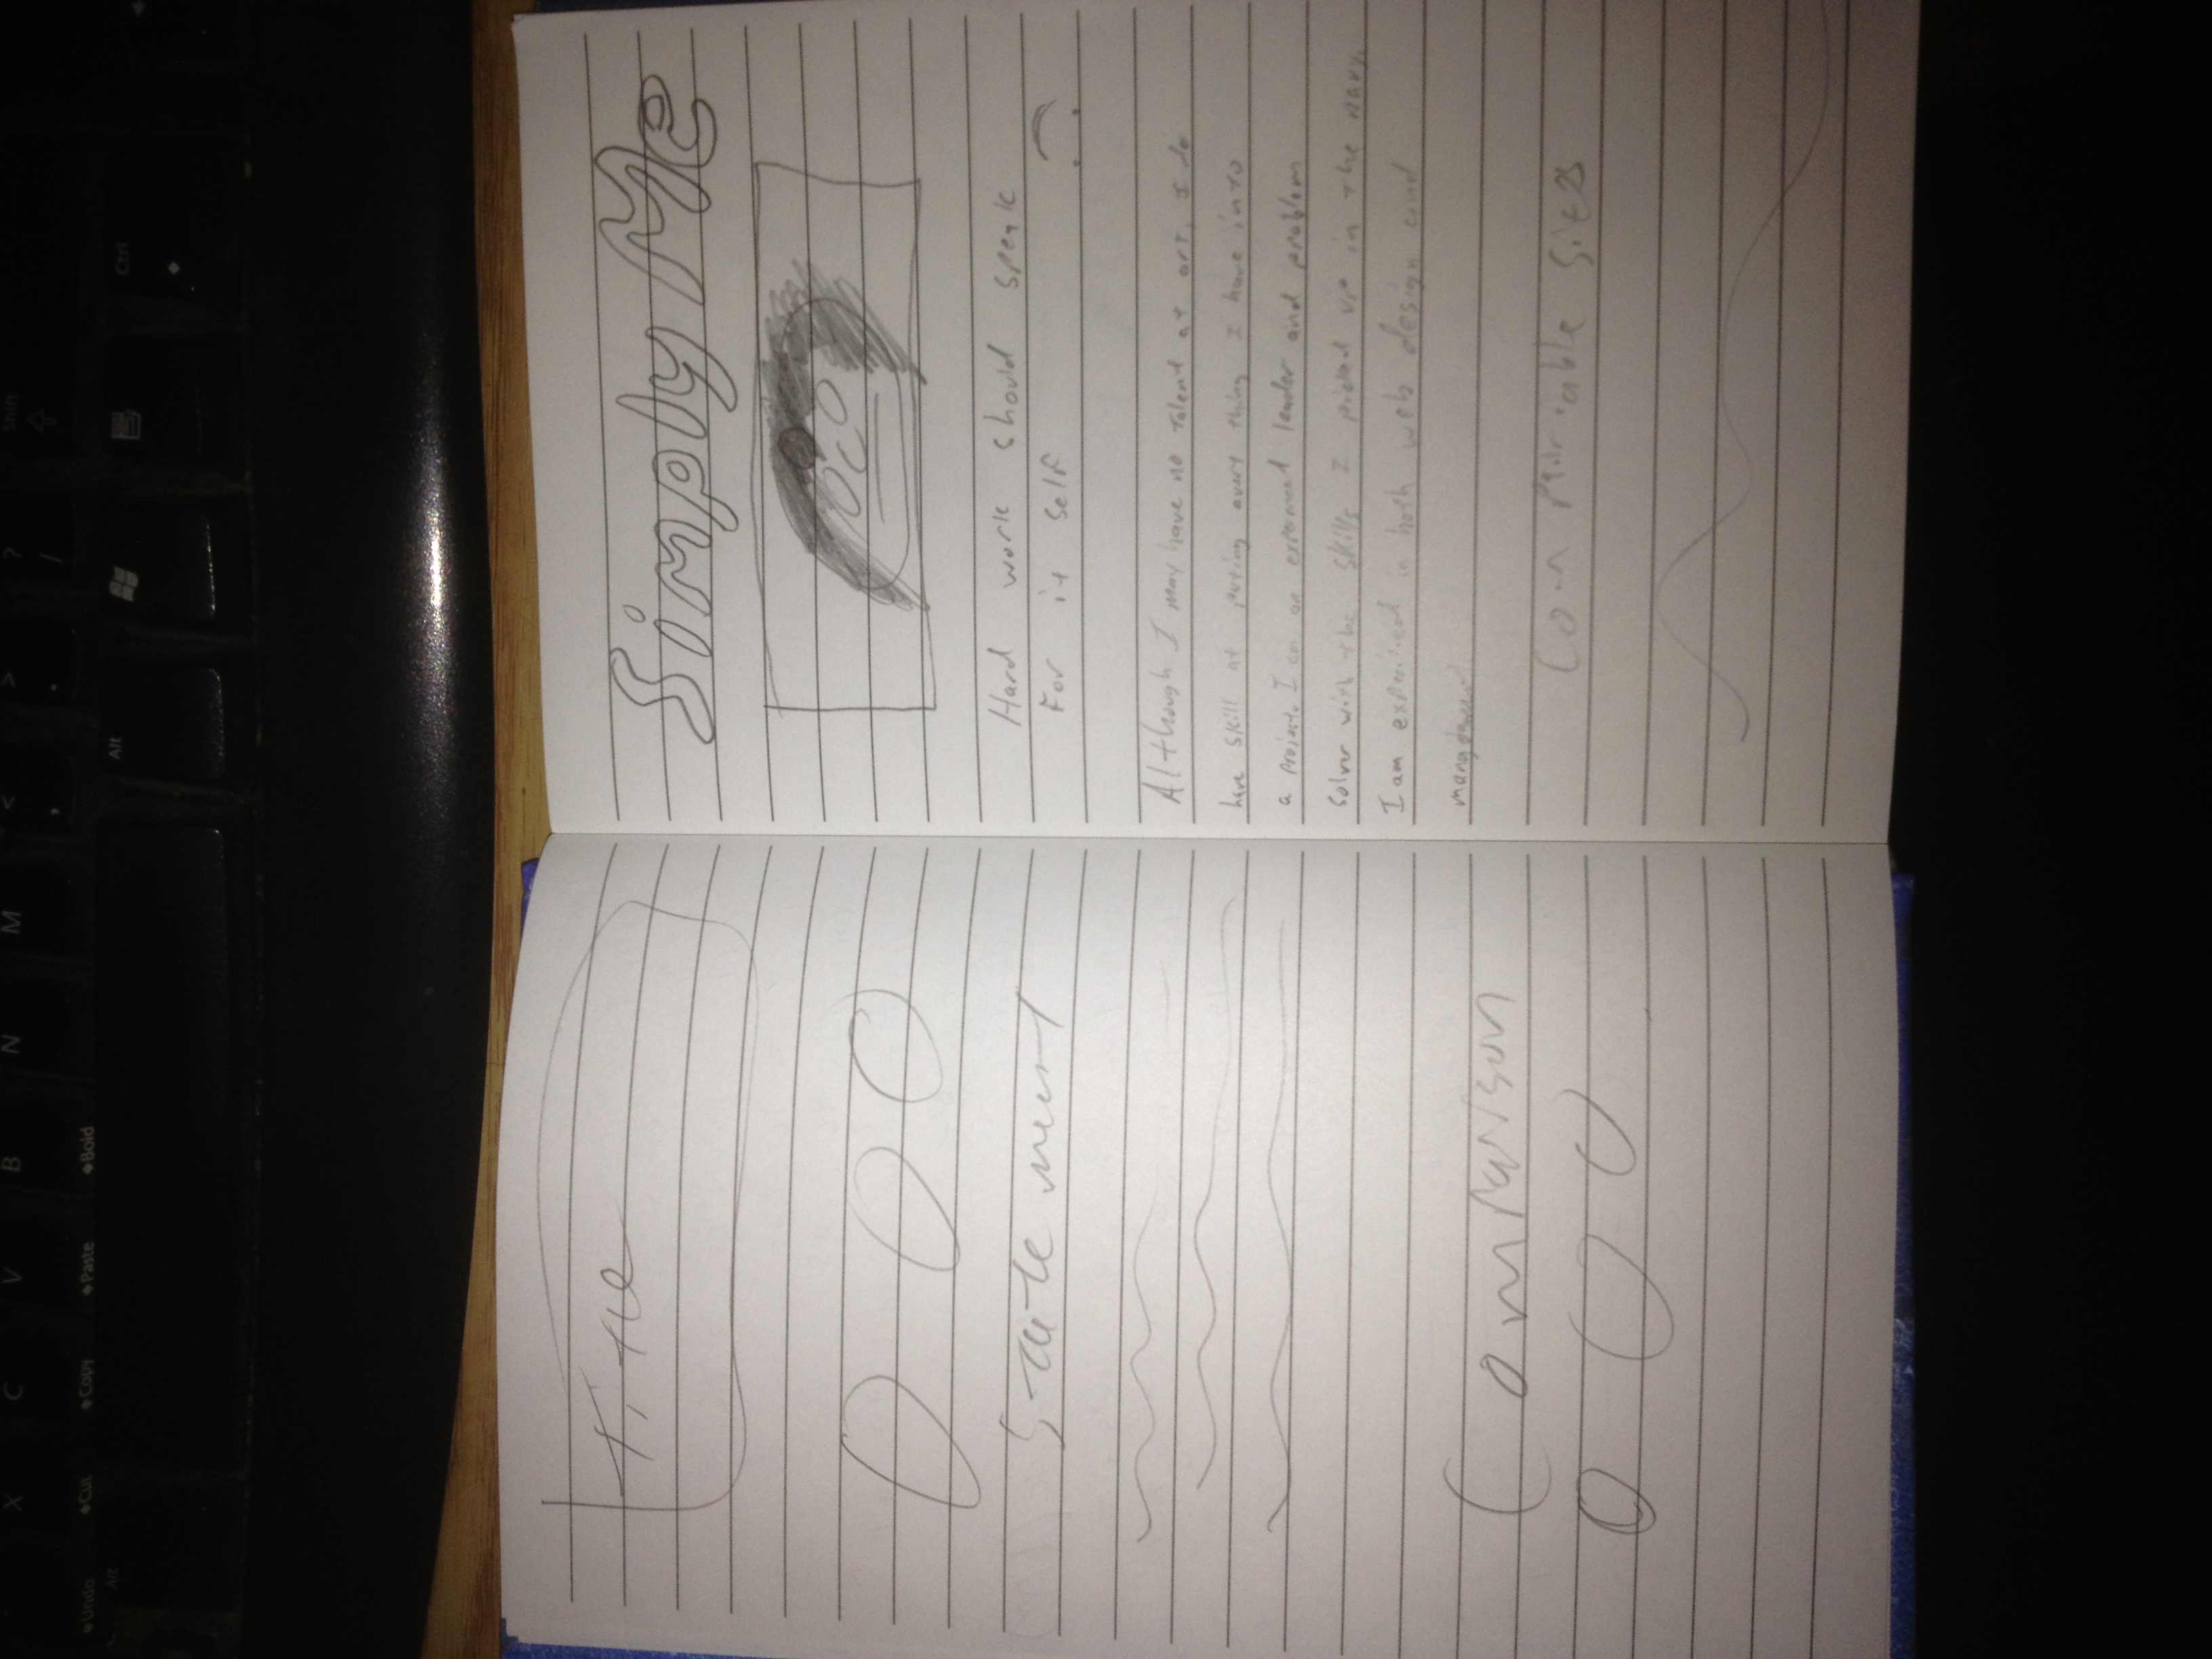 X C V B N M < >  ?
, . /
Shift
Undo Cut Copy Paste Bold
Alt Alt Ctrl
Title
State ment
Comparison
Simply Me
Hard work should speak
For it self
Although I may have no talent at art, I do
have skill at puting every thing I have into
a project. I am an leader and problem
solver with the skills I picked up in the navy.
I am in both web design and
Com pairiable Sites